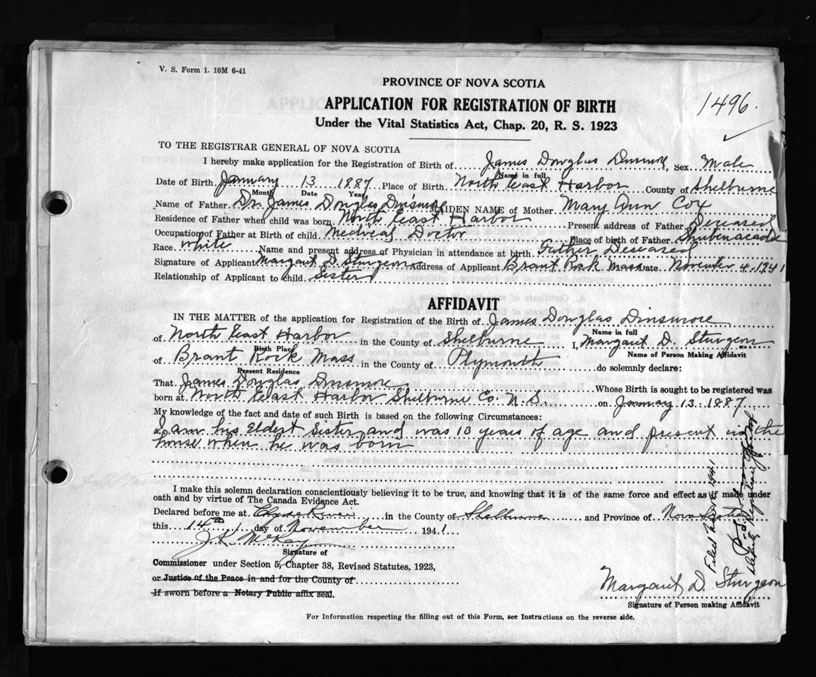 V. S. Form 1. 10M 6-41
PROVINCE OF NOVA SCOTIA
1496.
APPLICATION FOR REGISTRATION OF BIRTH
Under the Vital Statistics Act, Chap. 20, R. S. 1923
TO THE REGISTRAR GENERAL OF NOVA SCOTIA
I hereby make application for the Registration of Birth of James Douglas Dinsmore, Sex Male
Name in full
Date of Birth January 13 1887 Place of Birth North East Harbor County of Shelburne
Month Date Year
Name of Father Dr. James Douglas Dinsmore MAIDEN NAME of Mother Mary Ann Cox
Residence of Father when child was born North East Harbor Present address of Father Deceased
Occupation of Father at Birth of child Medical Doctor Place of birth of Father Shubenacadie
Race White Name and present address of Physician in attendance at birth Father Deceased
Signature of Applicant Margaret D. Sturgeon Address of Applicant Brant Rock Mass Date November 4-1941
Relationship of Applicant to child Sister
AFFIDAVIT
IN THE MATTER of the application for Registration of the Birth of James Douglas Dinsmore
Name in full
of North East Harbor in the County of Shelburne I, Margaret D. Sturgeon
Birth Place Name of Person Making Affidavit
of Brant Rock Mass in the County of Plymouth do solemnly declare:
Present Residence
That James Douglas Dinsmore Whose Birth is sought to be registered was
born at North East Harbor Shelburne Co. N.S. on January 13-1887
My knowledge of the fact and date of such Birth is based on the following Circumstances:
I am his Eldest Sister and was 13 years of age and present in the
house when he was born
I make this solemn declaration conscientiously believing it to be true, and knowing that it is of the same force and effect as if made under
oath and by virtue of The Canada Evidence Act.
Declared before me at Clyde River in the County of Shelburne and Province of Nova Scotia
this 14th day of November 1941
J.K. McKay
Signature of
Commissioner under Section 5, Chapter 38, Revised Statutes, 1923,
or Justice of the Peace in and for the County of
If sworn before a Notary Public affix seal.
Margaret D. Sturgeon
Signature of Person making Affidavit
For Information respecting the filling out of this Form, see Instructions on the reverse side.
Filed 1941
Deputy Registrar